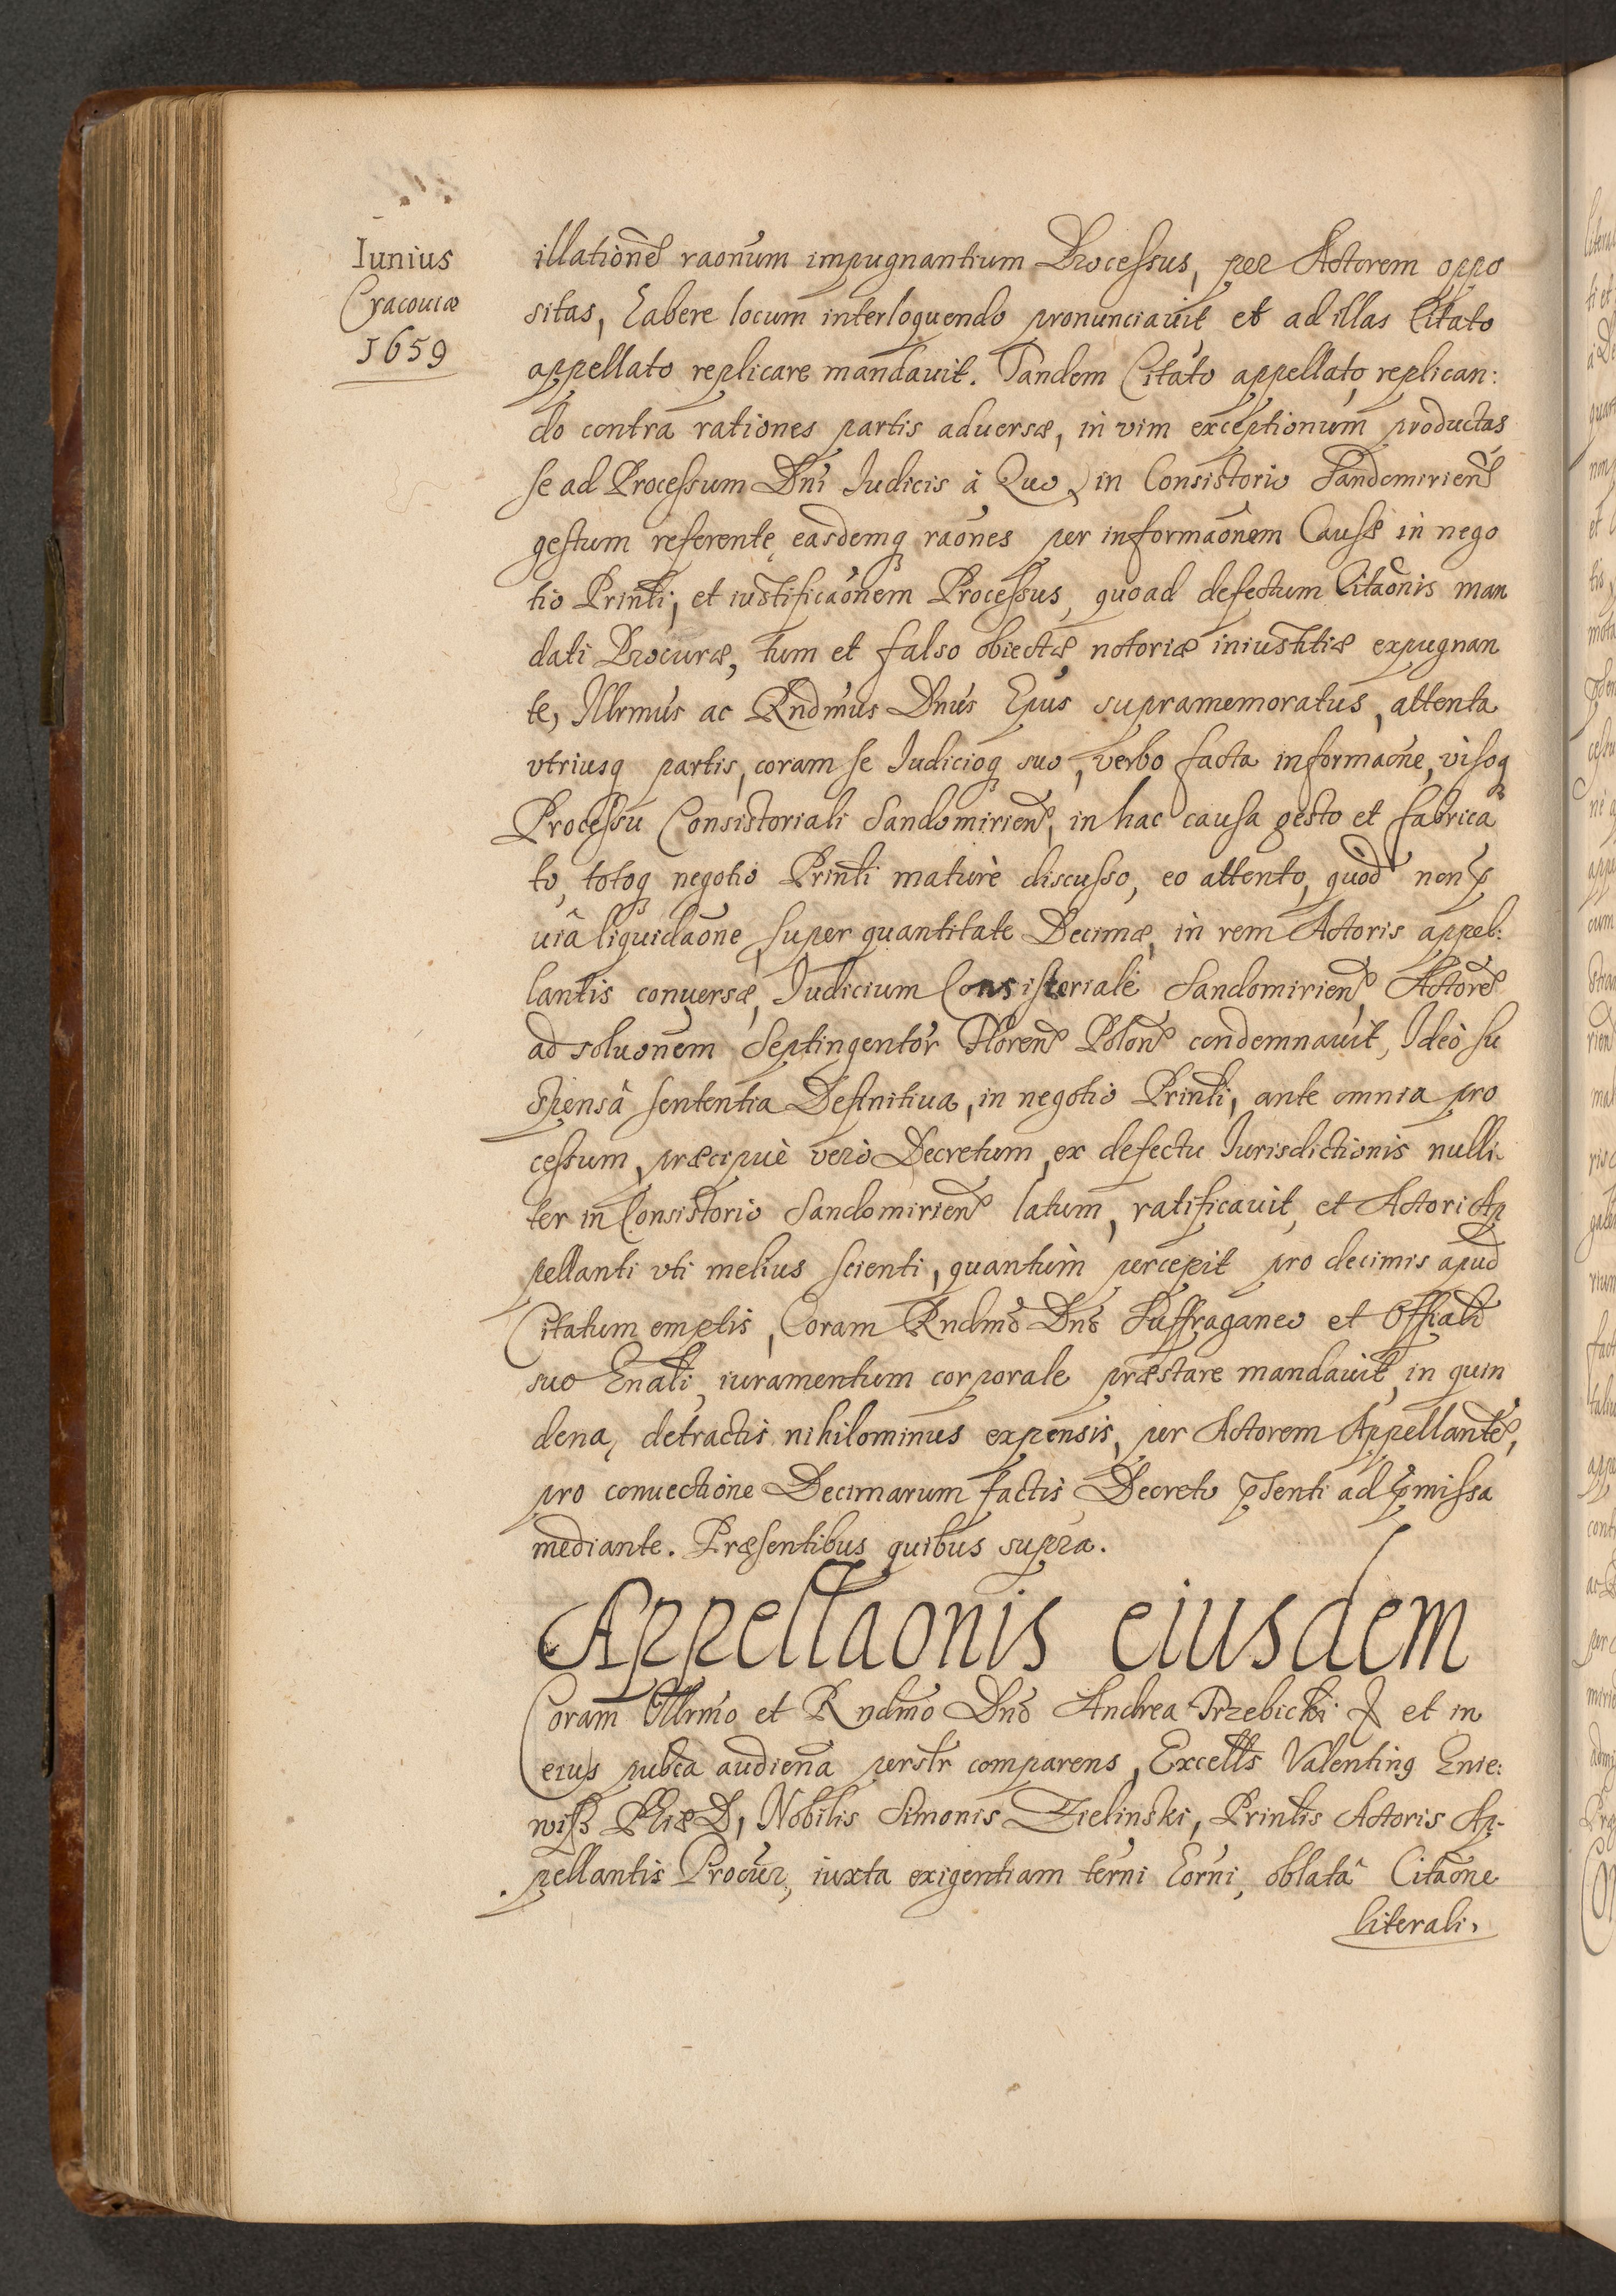 Iunius
Cracouiæ
1659
illatione͂ rao͂num impugnantium Processus, per Actorem oppo
sitas, habere locum interloquendo pronunciauit et ad illas Citato
appellato replicare mandauit. Tandem Citato appellato, replican:
do contra rationes partis aduersæ, in vim exceptionum productas
se ad Processum Dni͂ Iudicis à Quo, in Consistorio Sandomirien͂
gestum referente, easdemq͛ rao͂nes per informao͂nem Causæ in nego
tio Prin͂li, et iustificao͂nem Processus, quoad defectum Citao͂nis man
dati Procuræ, tum et falso obiectæ notoriæ iniustitiæ expugnan
te, Illrm͂us ac Rndm͂us Dnu͂s Ep͂us supramemoratus, attenta
vtriusq͛ partis, coram se Iudicioq͛ suo, verbo facta informao͂ne, visoq͛
Processu Consistoriali Sandomirien͂, in hac causa gesto et fabrica
to, totoq͛ negotio Prin͂li maturè discusso, eo attento, quod non p̱
uiâ liquidao͂ne super quantitate Decimæ, in rem Actoris appel:
lantis conuersæ, Iudicium Consistoriale Sandomirien͂ Actore͂
ad soluo͂nem Septingentor͂ Floren͂ Polon͂ condemnauit, Ideò su
spensâ sententia Definitiua, in negotio Prin͂li, ante omnia pro
cessum, præcipuè verò Decretum, ex defectu Iurisdictionis nulli
ter in Consistorio Sandomirien͂ latum, ratificauit, et Actori Ap
pellanti vti melius scienti, quantùm percepit pro decimis apud
Citatum emptis, Coram Rndmo͂ Dno͂ Suffraganeo et Offiali͂
suo Gnali͂, iuramentum corporale præstare mandauit, in quin
dena, detractis nihilominus expensis, per Actorem Appellante͂,
pro conuectione Decimarum factis Decreto p̱senti ad p̱missa
mediante. Præsentibus quibus supra.
Appellaonis eiusdem
Coram Illrm͂o et Rndm͂o Dno͂ Andrea Trzebicki & et in
eius pub͂ca audien͂a perstr͂ comparens, Excell͂s Valentinꝯ Gnie:
wisz Ph͂iæ D, Nobilis Simonis Zielinski, Prin͂lis Actoris Ap-
pellantis Procur͂, iuxta exigentiam ter͂ni hor͂ni, oblatâ Citao͂ne
literali,